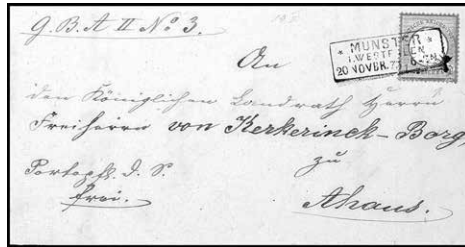 G. B. A II No 3.
* MÜNSTER *
I. WESTFALEN
20 NOVBR. 7
6-7N
An
den Königlichen Landrath Herrn
Freiherrn von Kerkerinck-Borg
zu
Portopfl. D. S.
frei.
Ahaus.